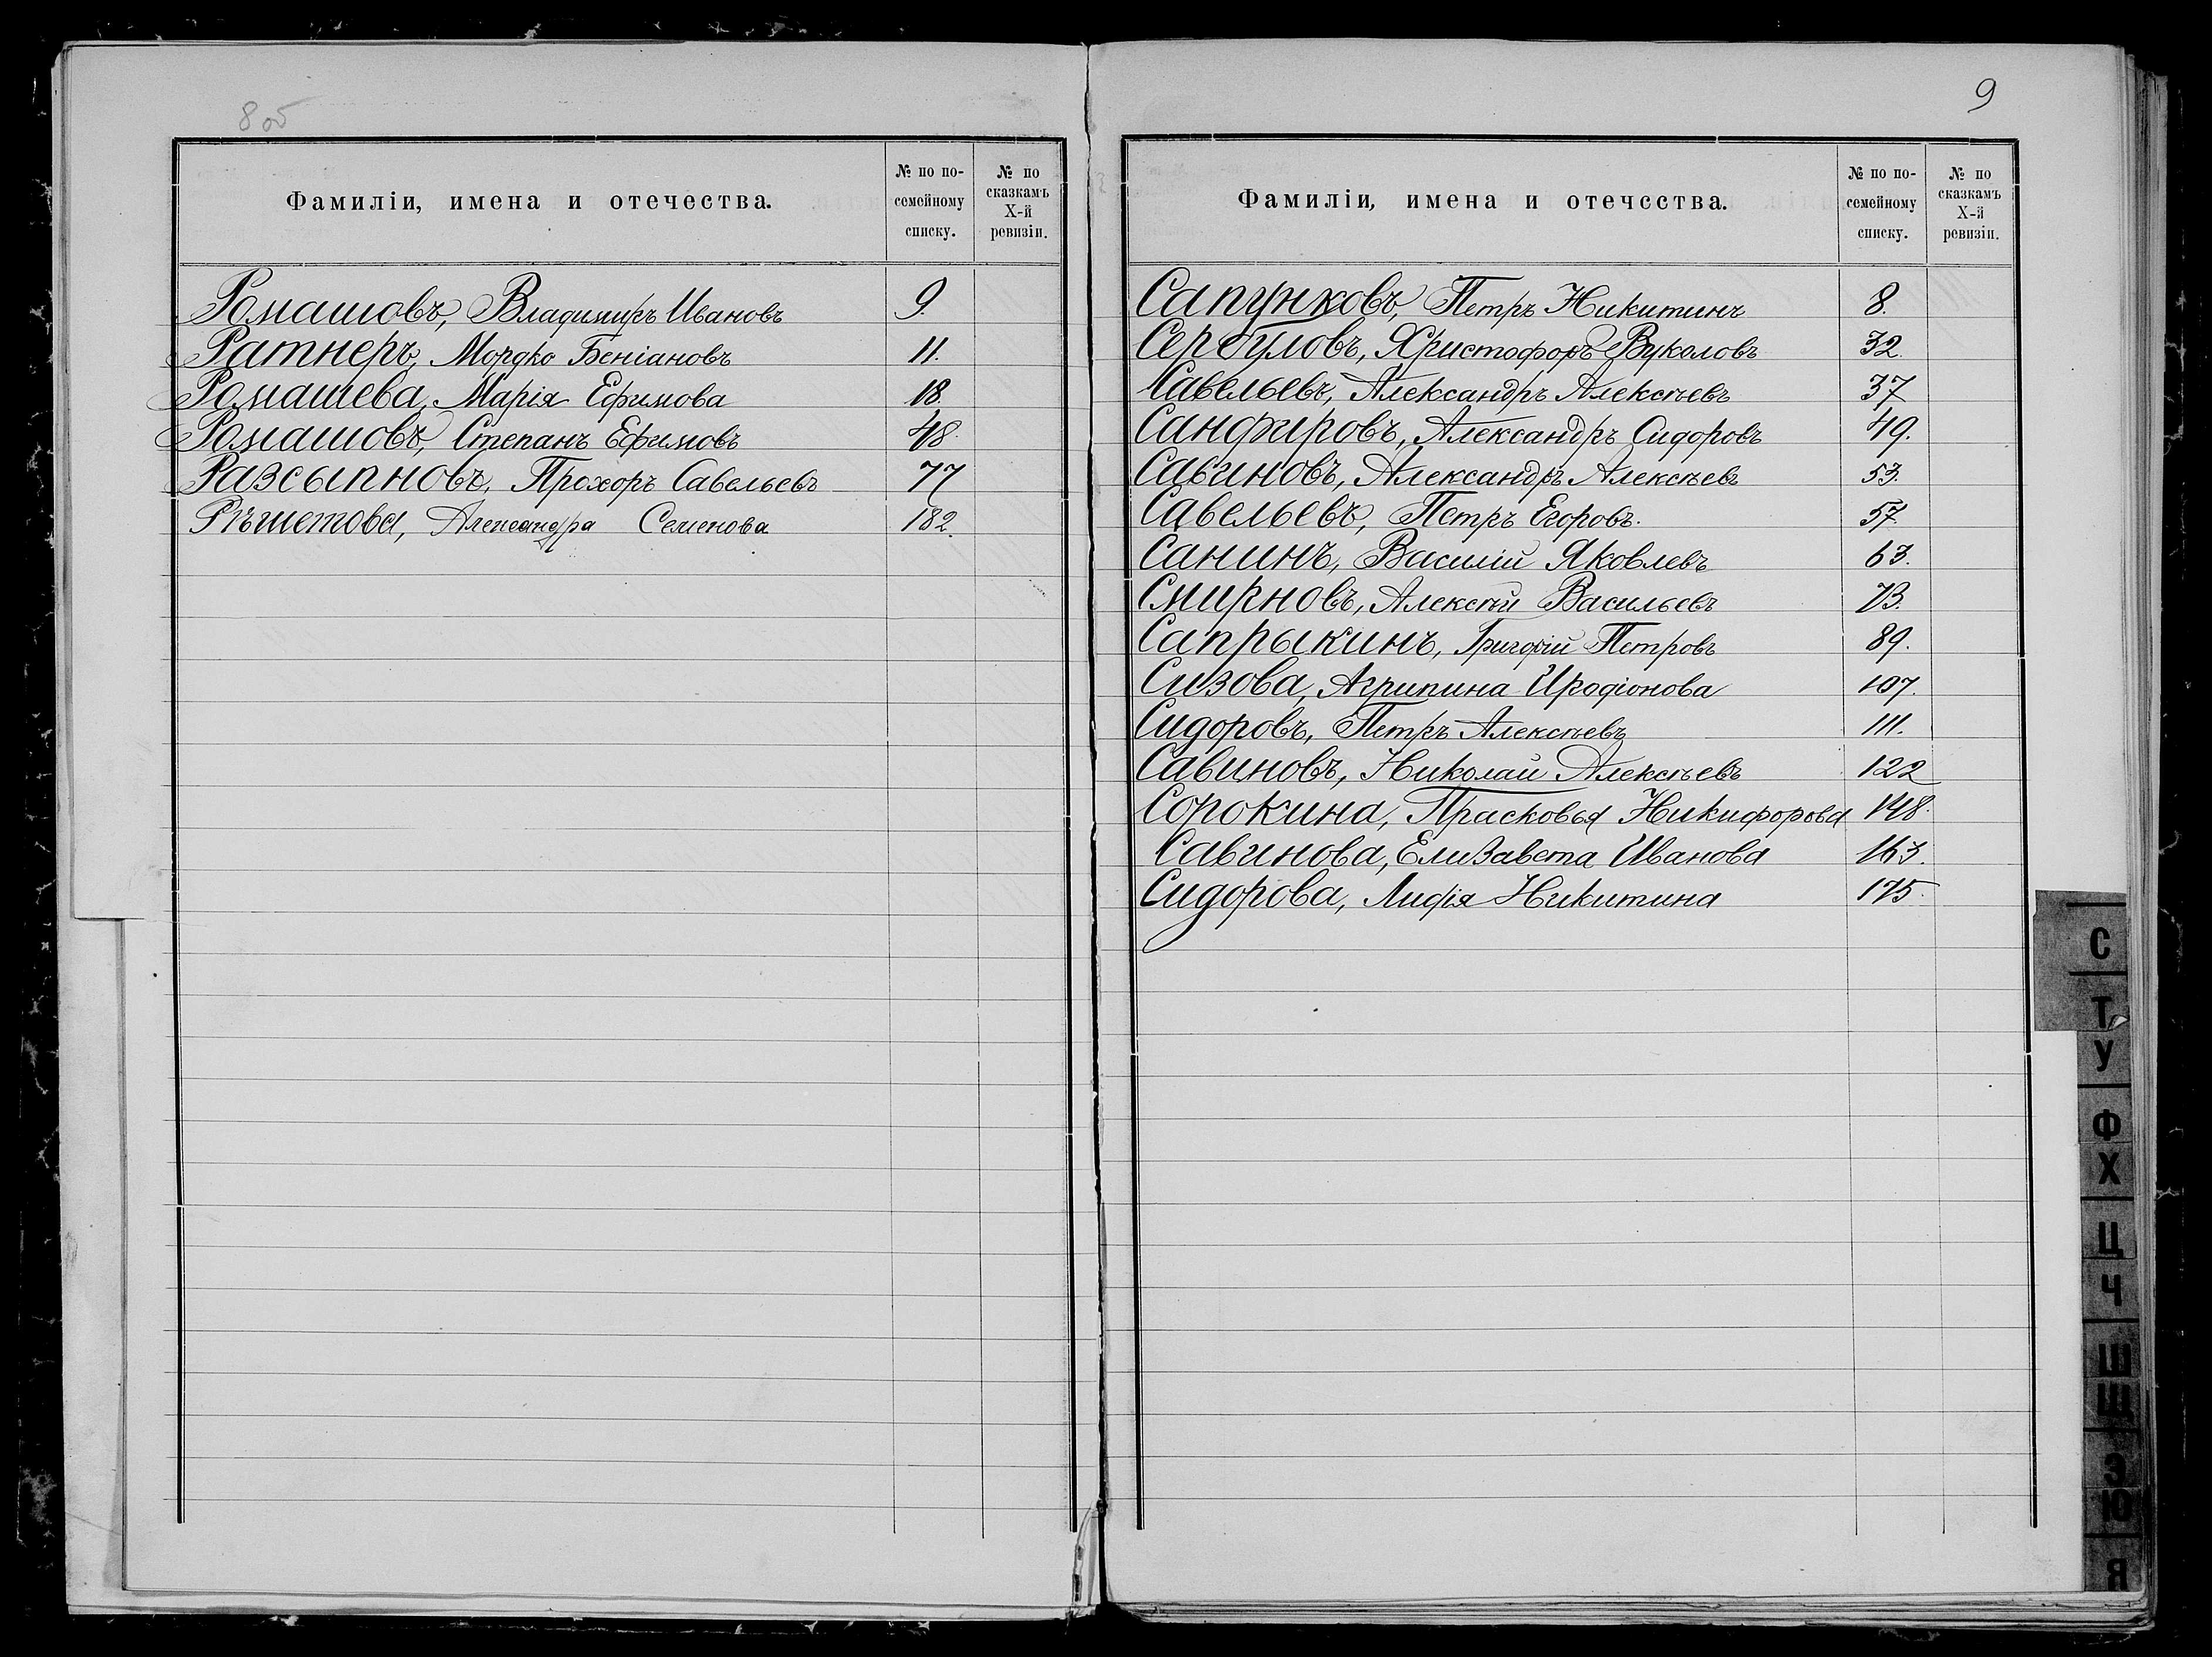 8 об
Фамиліи, имена и отечества.
№ по по-
семейному
списку.
№ по
сказкамъ
X-й
ревизіи.
Ромашовъ, Владимиръ Ивановъ 9.
Ратнеръ, Мордко Беніановъ 11.
Ромашева, Марія Ефимова 18.
Ромашовъ, Степанъ Ефимовъ 48.
Разсыпновъ, Прохоръ Савельевъ 77
Рѣшетова, Александра Семенова 182.
9
Фамиліи, имена и отечества.
№ по по-
семейному
списку.
№ по
сказкамъ
X-й
ревизіи.
Сапунковъ, Петръ Никитинъ 8.
Сербуловъ, Христофоръ Вуколовъ 32.
Савельевъ, Александръ Алексѣевъ 37
Санфировъ, Александръ Сидоровъ 49.
Савиновъ, Александръ Алексѣевъ 53.
Савельевъ, Петръ Егоровъ. 57
Санинъ, Василій Яковлевъ 63.
Смирновъ, Алексѣй Васильевъ 73.
Сапрыкинъ, Григорій Петровъ 89.
Сизова, Агрипина Иродіонова 107.
Сидоровъ, Петръ Алексѣевъ 111.
Савиновъ, Николай Алексѣевъ 122
Сорокина, Прасковья Никифорова 148.
Савинова, Елизавета Иванова 163.
Сидорова, Лидія Никитина 175.
С
Т
У
Ф
Х
Ц
Ч
Ш
Щ
Э
Ю
Я